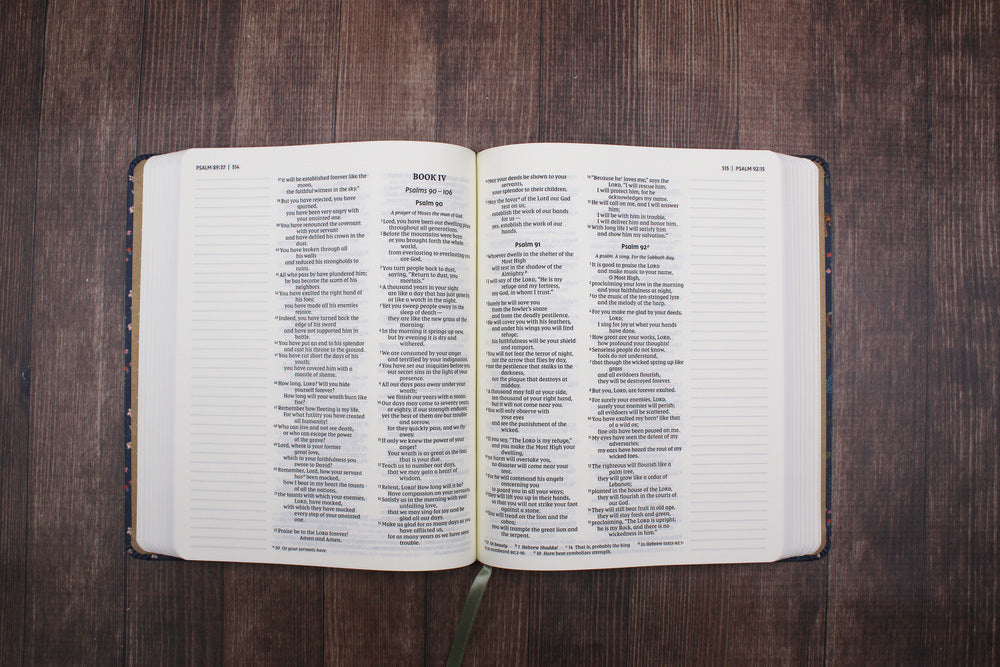 PSALM 89:37 | 514
37 it will be established forever like the
moon,
the faithful witness in the sky."
38 But you have rejected, you have
spurned,
you have been very angry with
your anointed one.
39 You have renounced the covenant
with your servant
and have defiled his crown in the
dust.
40 You have broken through all
his walls
and reduced his strongholds to
ruins.
41 All who pass by have plundered him;
he has become the scorn of his
neighbors.
42 You have exalted the right hand of
his foes;
you have made all his enemies
rejoice.
43 Indeed, you have turned back the
edge of his sword
and have not supported him in
battle.
44 You have put an end to his splendor
and cast his throne to the ground.
45 You have cut short the days of his
youth;
you have covered him with a
mantle of shame.
46 How long, LORD? Will you hide
yourself forever?
How long will your wrath burn like
fire?
47 Remember how fleeting is my life.
For what futility you have created
all humanity!
48 Who can live and not see death,
or who can escape the power
of the grave?
49 Lord, where is your former
great love,
which in your faithfulness you
swore to David?
50 Remember, Lord, how your servant
has been mocked,
how I bear in my heart the taunts
of all the nations,
51 the taunts with which your enemies,
LORD, have mocked,
with which they have mocked
every step of your anointed
one.
52 Praise be to the LORD forever!
Amen and Amen.
BOOK IV
Psalms 90–106
Psalm 90
A prayer of Moses the man of God.
1 Lord, you have been our dwelling place
throughout all generations.
2 Before the mountains were born
or you brought forth the whole
world,
from everlasting to everlasting you
are God.
3 You turn people back to dust,
saying, "Return to dust, you
mortals."
4 A thousand years in your sight
are like a day that has just gone by,
or like a watch in the night.
5 Yet you sweep people away in the
sleep of death—
they are like the new grass of the
morning:
6 In the morning it springs up new,
but by evening it is dry and
withered.
7 We are consumed by your anger
and terrified by your indignation.
8 You have set our iniquities before you,
our secret sins in the light of your
presence.
9 All our days pass away under your
wrath;
we finish our years with a moan.
10 Our days may come to seventy years,
or eighty, if our strength endures;
yet the best of them are but trouble
and sorrow,
for they quickly pass, and we fly
away.
11 If only we knew the power of your
anger!
Your wrath is as great as the fear
that is your due.
12 Teach us to number our days,
that we may gain a heart of
wisdom.
13 Relent, LORD! How long will it be?
Have compassion on your servants.
14 Satisfy us in the morning with your
unfailing love,
that we may sing for joy and be
glad all our days.
15 Make us glad for as many days as you
have afflicted us,
for as many years as we have seen
trouble.
a 50 Or your servants have
515 | PSALM 92:15
16 May your deeds be shown to your
servants,
your splendor to their children.
17 May the favor a of the Lord our God
rest on us;
establish the work of our hands
for us—
yes, establish the work of our
hands.
Psalm 91
1 Whoever dwells in the shelter of the
Most High
will rest in the shadow of the
Almighty. b
2 I will say of the LORD, "He is my
refuge and my fortress,
my God, in whom I trust."
3 Surely he will save you
from the fowler's snare
and from the deadly pestilence.
4 He will cover you with his feathers,
and under his wings you will find
refuge;
his faithfulness will be your shield
and rampart.
5 You will not fear the terror of night,
nor the arrow that flies by day,
6 nor the pestilence that stalks in the
darkness,
nor the plague that destroys at
midday.
7 A thousand may fall at your side,
ten thousand at your right hand,
but it will not come near you.
8 You will only observe with
your eyes
and see the punishment of the
wicked.
9 If you say, "The LORD is my refuge,"
and you make the Most High your
dwelling,
10 no harm will overtake you,
no disaster will come near your
tent.
11 For he will command his angels
concerning you
to guard you in all your ways;
12 they will lift you up in their hands,
so that you will not strike your foot
against a stone.
13 You will tread on the lion and the
cobra;
you will trample the great lion and
the serpent.
14 "Because he c loves me," says the
LORD, "I will rescue him;
I will protect him, for he
acknowledges my name.
15 He will call on me, and I will answer
him;
I will be with him in trouble,
I will deliver him and honor him.
16 With long life I will satisfy him
and show him my salvation."
Psalm 92 d
A psalm. A song. For the Sabbath day.
1 It is good to praise the LORD
and make music to your name,
O Most High,
2 proclaiming your love in the morning
and your faithfulness at night,
3 to the music of the ten-stringed lyre
and the melody of the harp.
4 For you make me glad by your deeds,
LORD;
I sing for joy at what your hands
have done.
5 How great are your works, LORD,
how profound your thoughts!
6 Senseless people do not know,
fools do not understand,
7 that though the wicked spring up like
grass
and all evildoers flourish,
they will be destroyed forever.
8 But you, LORD, are forever exalted.
9 For surely your enemies, LORD,
surely your enemies will perish;
all evildoers will be scattered.
10 You have exalted my horn e like that
of a wild ox;
fine oils have been poured on me.
11 My eyes have seen the defeat of my
adversaries;
my ears have heard the rout of my
wicked foes.
12 The righteous will flourish like a
palm tree,
they will grow like a cedar of
Lebanon;
13 planted in the house of the LORD,
they will flourish in the courts of
our God.
14 They will still bear fruit in old age,
they will stay fresh and green,
15 proclaiming, "The LORD is upright;
he is my Rock, and there is no
wickedness in him."
a 17 Or beauty b 1 Hebrew Shaddai c 14 That is, probably the king d In Hebrew texts 92:1-
is numbered 92:2-16. e 10 Horn here symbolizes strength.